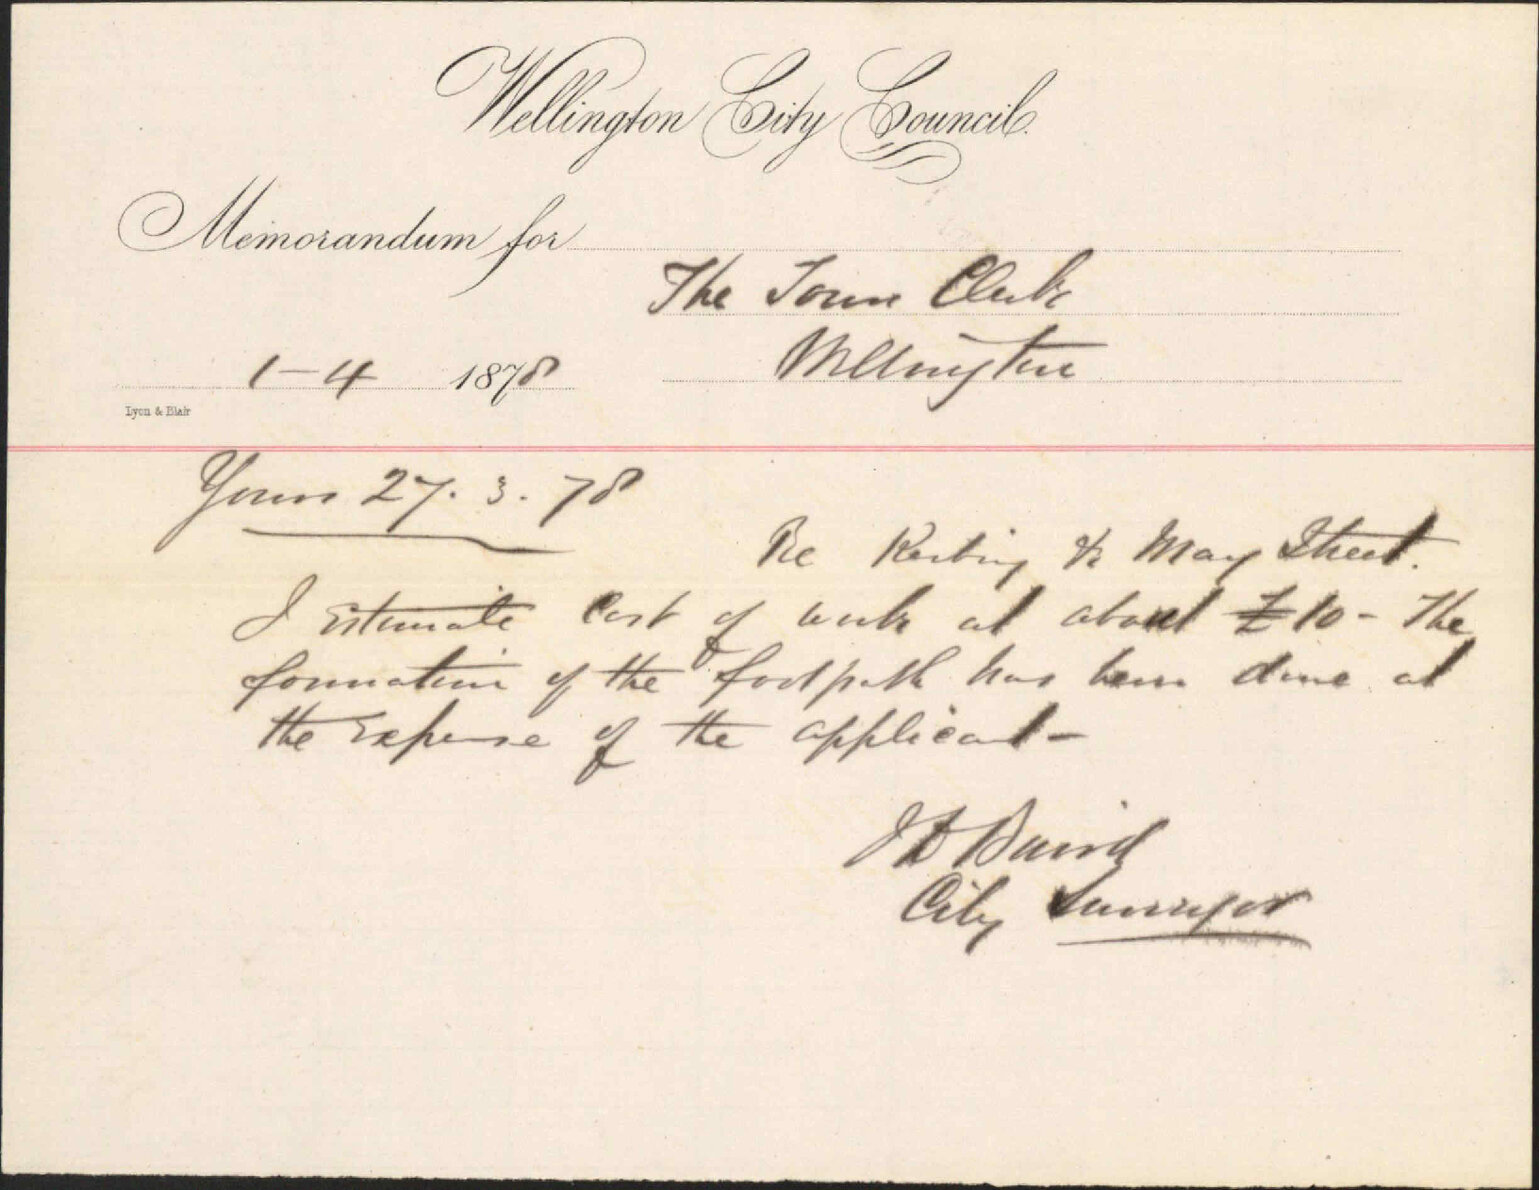 Wellington City Council.
Memorandum for
The Town Clerk
Wellington
1-4 1878
Lyon & Blair
Yours 27.3.78
Re Kerbing &c May Street.
I estimate Cost of work at about £10 - The
formation of the footpath has been done at
the expense of the applicant -
J D Baird
City Surveyor